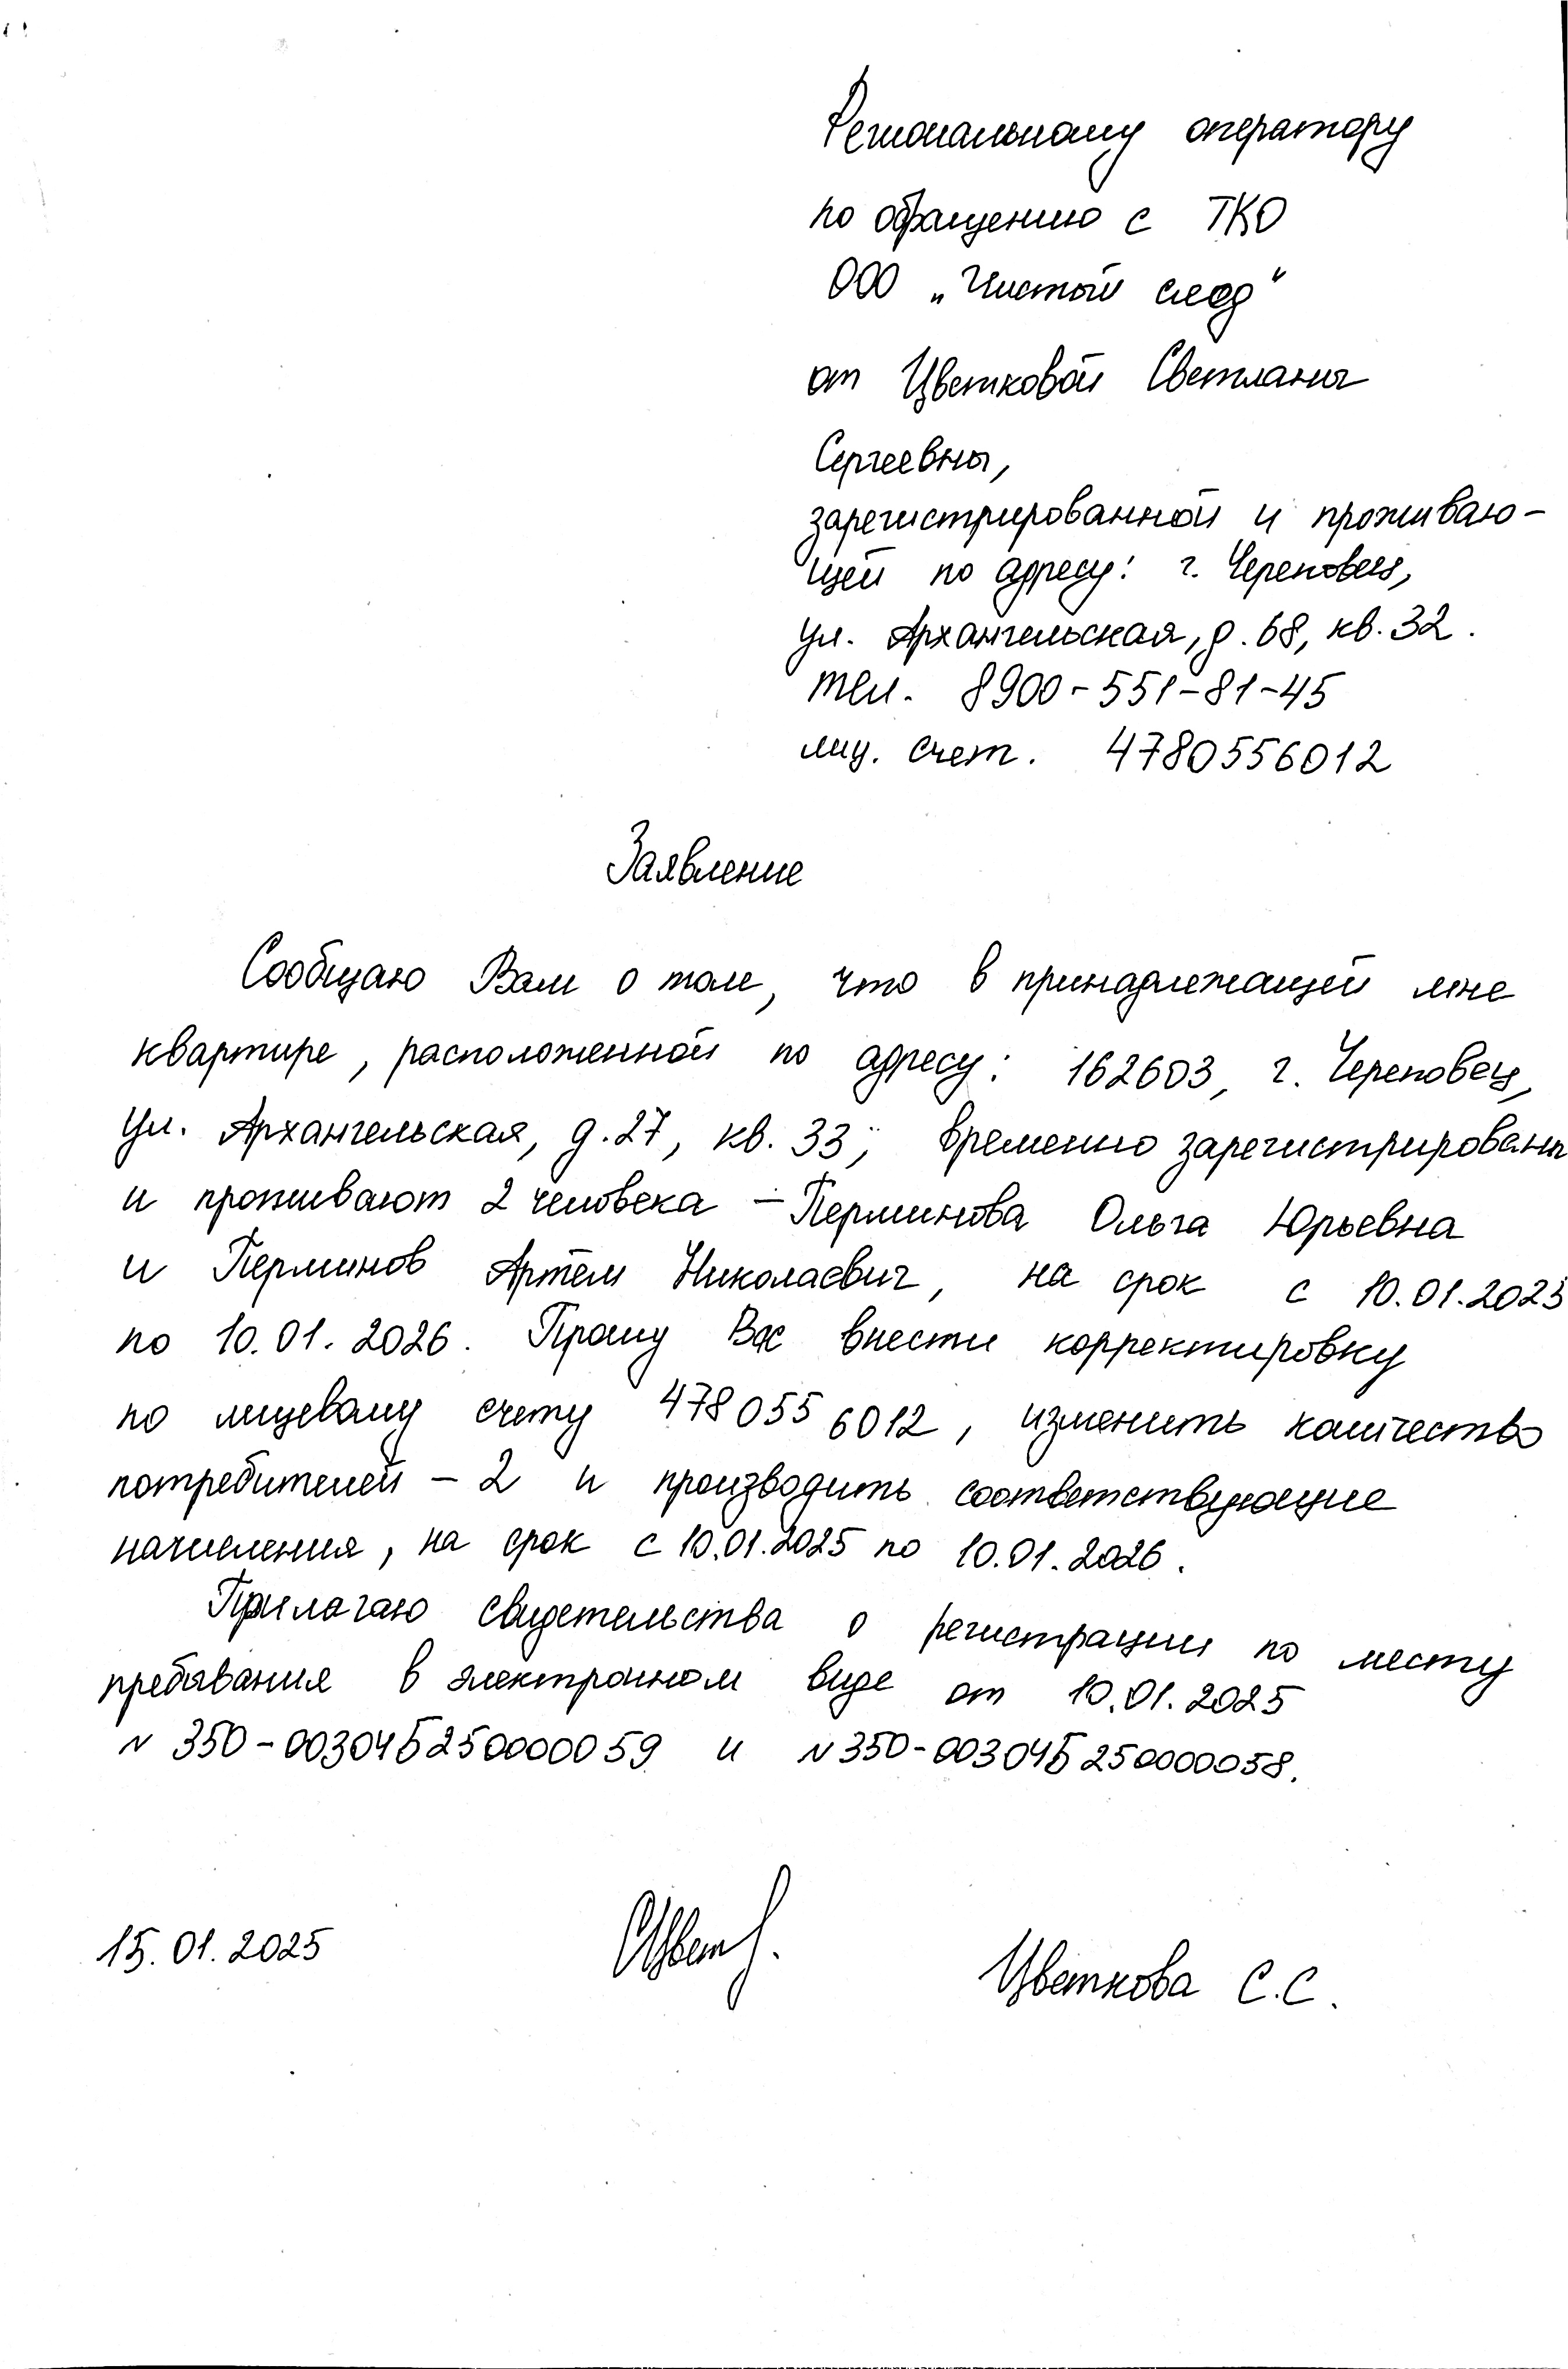 Региональному оператору
по обращению с ТКО
ООО „Чистый след“
от Цветковой Светланы
Сергеевны,
зарегистрированной и проживаю-
щей по адресу: г. Череповец,
ул. Архангельская, д. 68, кв. 32.
тел. 8900-551-81-45
лиц. счет. 4780556012
Заявление
Сообщаю Вам о том, что в принадлежащей мне
квартире, расположенной по адресу: 162603, г. Череповец,
ул. Архангельская, д. 27, кв. 33, временно зарегистрированы
и проживают 2 человека - Перминова Ольга Юрьевна
и Перминов Артём Николаевич, на срок с 10.01.2025
по 10.01.2026. Прошу Вас внести корректировку
по лицевому счету 4780556012, изменить количество
потребителей - 2 и производить соответствующие
начисления, на срок с 10.01.2025 по 10.01.2026.
Прилагаю свидетельства о регистрации по месту
пребывания в электронном виде от 10.01.2025
N 350-00304Б250000059 и N 350-00304Б250000058.
15.01.2025
Цветкова С.С.